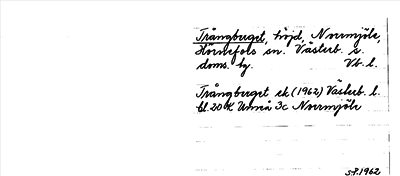 Trångberget, höjd, Norrmjöle,
Hörnefors sn. Västerb. s.
doms. hg. Vb. l.
Trångberget ek (1962) Västerb. l.
bl. 20 K Umeå 3c Norrmjöle
S.P. 1962